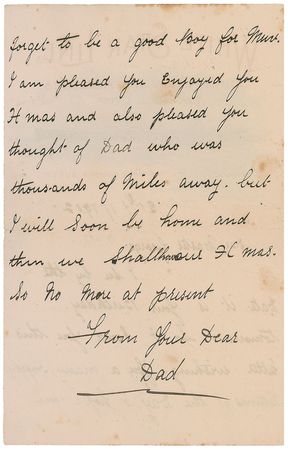 forget to be a good Boy for Mum.
I am pleased you Enjoyed you
Xmas and also pleased you
thought of Dad who was
thousands of Miles away. but
I will soon be home and
then we Shall have Xmas.
So No More at present
From Your Dear
Dad